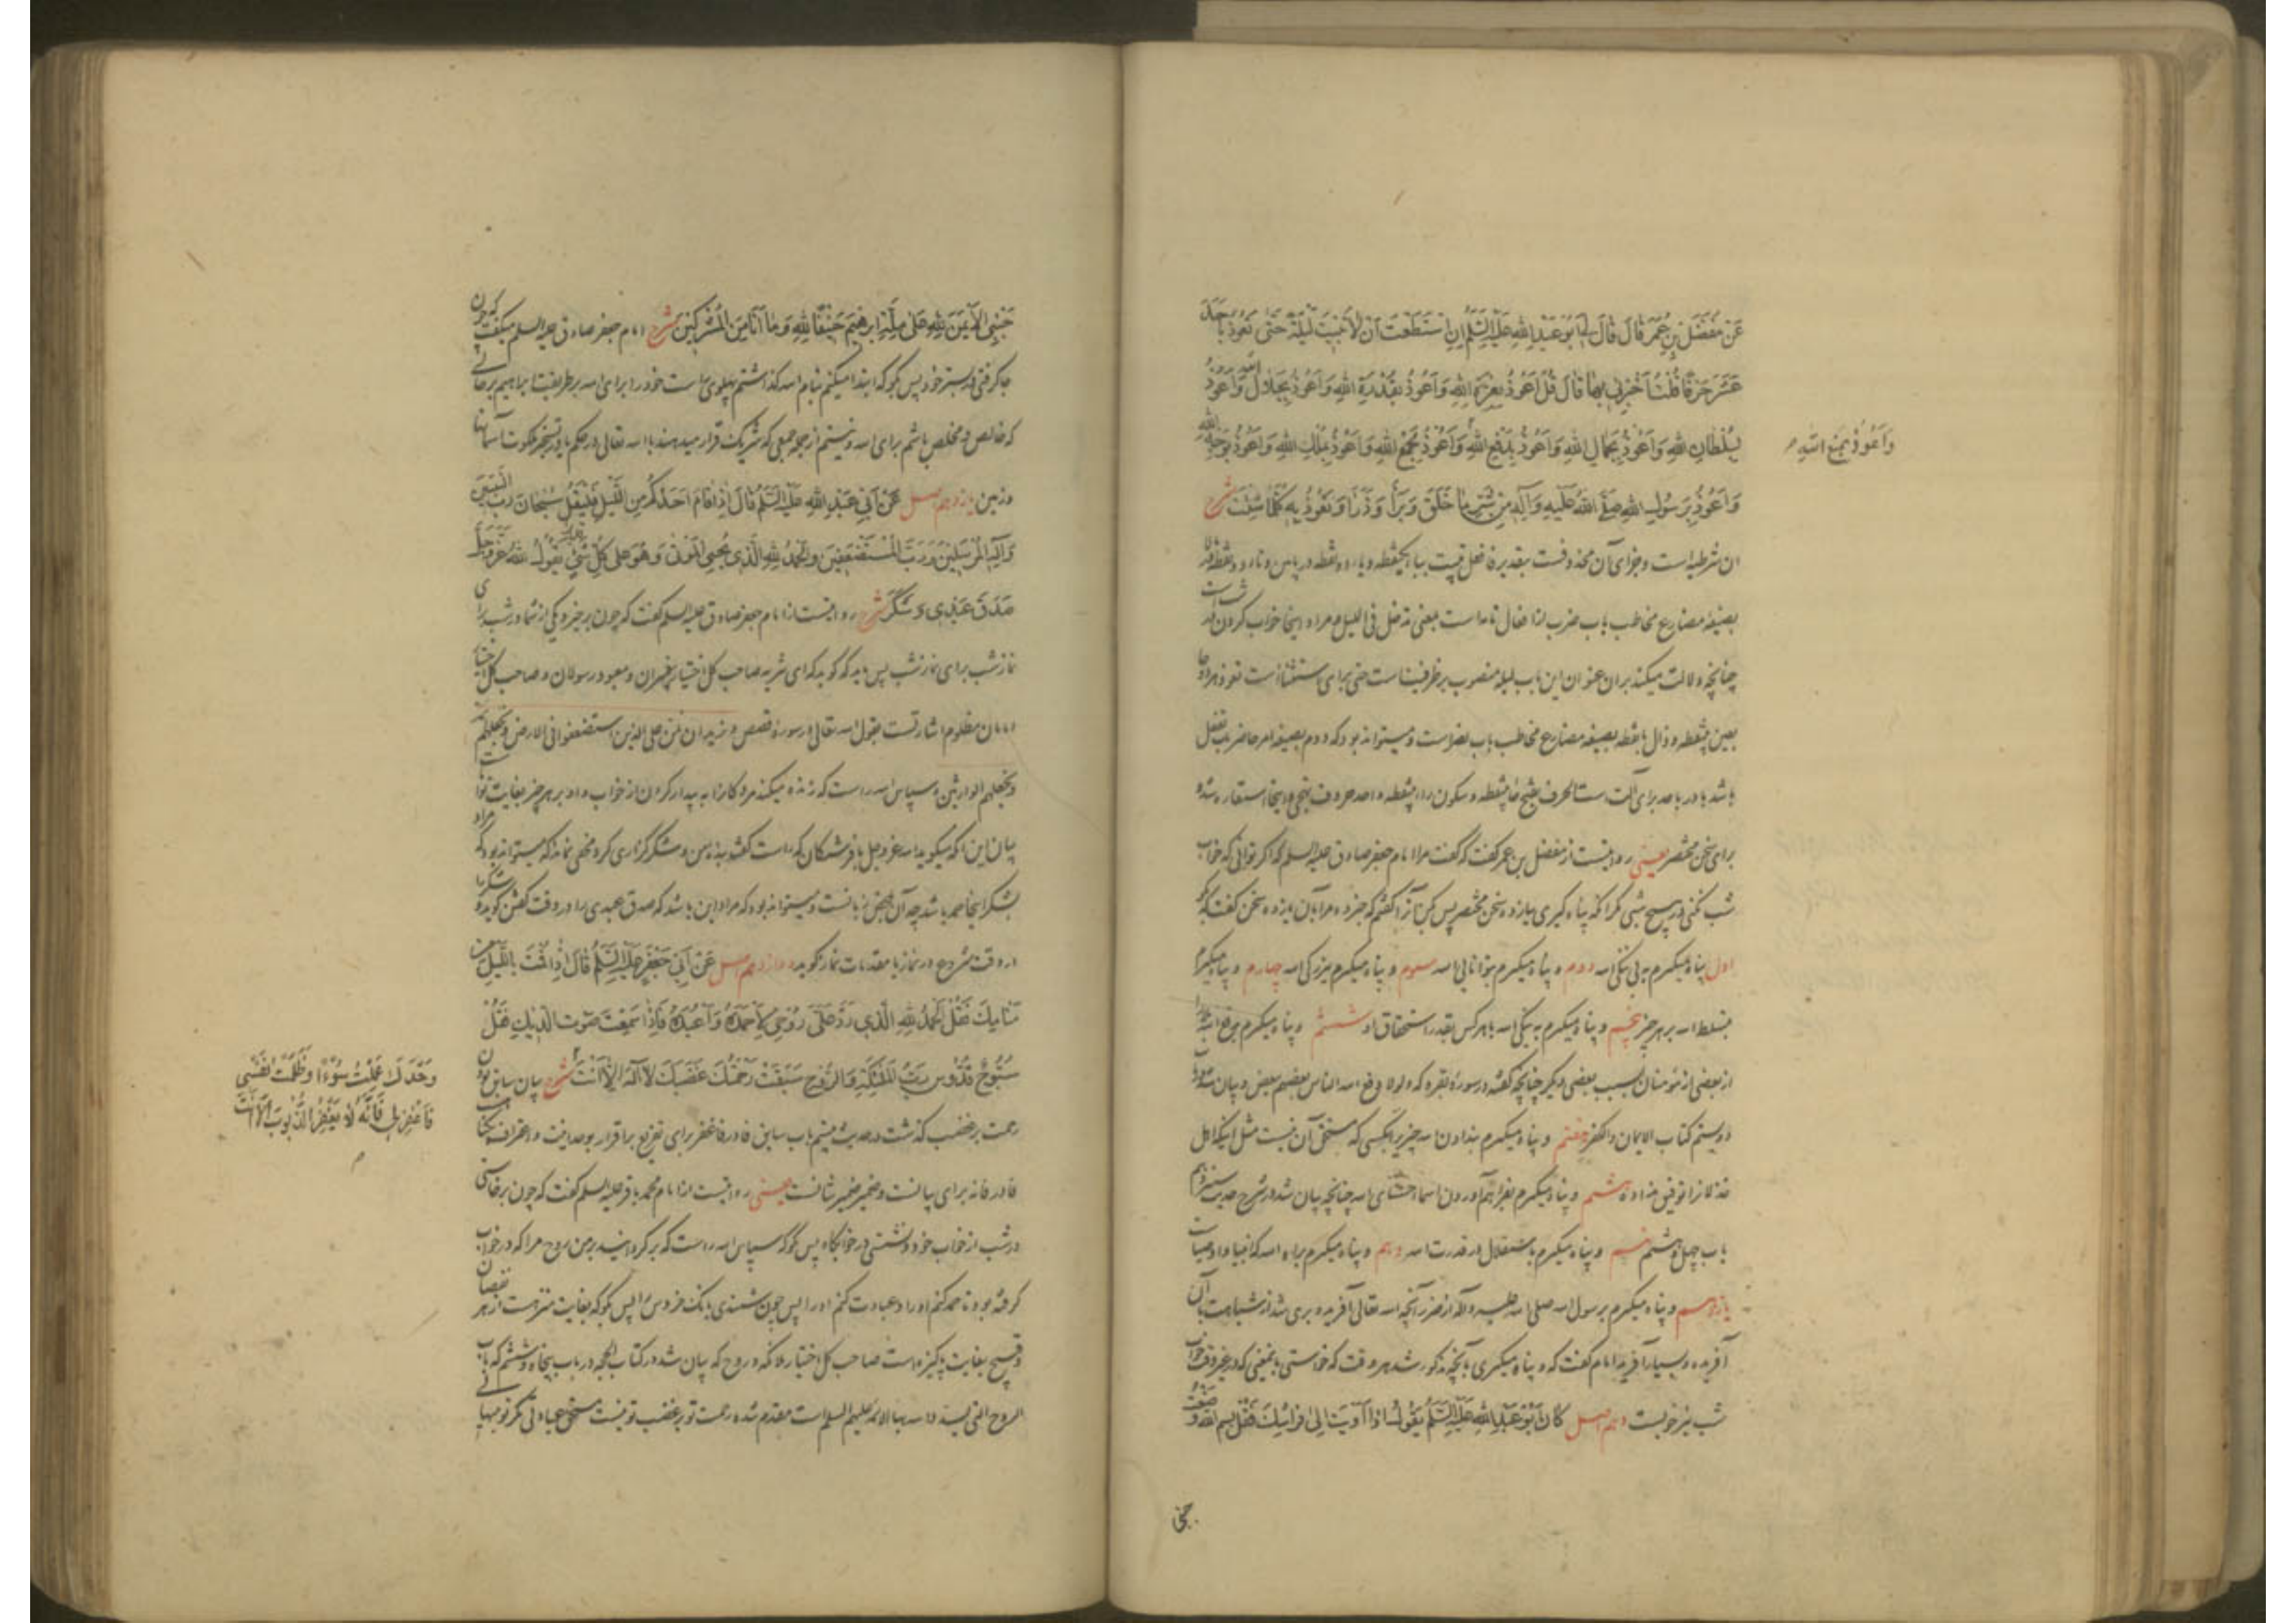 عَنْ مُفَضَّلِ بْنِ عُمَرَ قَالَ قَالَ لِي اَبُو عَبْدِ اللهِ عَلَيْهِ السَّلَمُ اِنِ اسْتَطَعْتَ اَنْ لَا تَبِيتَ لَيْلَةً حَتَّى تَعَوَّذَ بِاَحَدَ
عَشَرَ حَرْفًا قُلْتُ اَخْبِرْنِي بِهَا قَالَ قُلْ اَعُوذُ بِعِزَّةِ اللهِ وَاَعُوذُ بِقُدْرَةِ اللهِ وَاَعُوذُ بِجَلَالِ اللهِ وَاَعُوذُ
بِسُلْطَانِ اللهِ وَاَعُوذُ بِجَمَالِ اللهِ وَاَعُوذُ بِدَفْعِ اللهِ وَاَعُوذُ بِجَمْعِ اللهِ وَاَعُوذُ بِمُلْكِ اللهِ وَاَعُوذُ بِوَجْهِ اللهِ
وَاَعُوذُ بِمَنْعِ اللهِ م
وَاَعُوذُ بِرَسُولِ اللهِ صَلَّى اللهُ عَلَيْهِ وَآلِهِ مِنْ شَرِّ مَا خَلَقَ وَبَرَأَ وَذَرَأَ وَتَعَوَّذْ بِهِ كُلَّمَا شِئْتَ شرح
ان شرطیه است و جزای آن محذوفست بتقدیر فافعل تبیت ببا یکنقطه و یا دو نقطه در پایین و تا دو نقطه در بالا
بصیغهٔ مضارع مخاطب باب ضرب از افعال تامه است بمعنی تدخل فی اللیل و مراد اینجا خواب کردن در شب است
چنانچه دلالت میکند بر آن عنوان این باب لیلة منصوب بر ظرفیت است حتی برای استثناست تعوذ
بعین بینقطه و ذال بانقطه بصیغه مضارع مخاطب باب نصر است و میتواند بود که دوم بصیغه امر حاضر باب تفعل
باشد با در باحد برای آلت است الحرف بفتح حاء بینقطه و سکون راء بینقطه واحد حروف تهجی و اینجا استعاره شده
برای سخن مختصر یعنی روایتست از مفضل بن عمر گفت که گفت مرا امام جعفر صادق علیه السلم که اگر توانی که خواب
شب نکنی در هیچ شبی مگر آنکه پناه گیری بیازده سخن مختصر پس کن آنرا گفتم که خبر ده مرا بآن یازده سخن گفت بگو که
اول پناه میگیرم به بی ننگی الله دوم و پناه میگیرم بتوانایی الله سیوم و پناه میگیرم ببزرگی الله چهارم و پناه میگیرم
بتسلط الله بر هر چیز پنجم و پناه میگیرم به نیکی الله باهر کس بقدر استحقاق او ششم و پناه میگیرم بدفع الله
از بعضی از مؤمنان بسبب بعضی دیگر چنانچه گفته در سوره بقره که ولولا دفع الله الناس بعضهم ببعض و بیان شد در
دویستم کتاب الایمان والکفر هفتم و پناه میگیرم بندادن الله چیزیرا بکسی که مستحق آن نیست مثل اینکه اهل
خذلانرا توفیق نداده هشتم و پناه میگیرم بفراهم آوردن اسماء حسنای الله چنانچه بیان شد در شرح حدیث
باب چهل و هشتم نهم و پناه میگیرم باستقلال در قدرت الله دهم و پناه میگیرم براه الله که انبیا و اوصیاست
یازدهم و پناه میگیرم برسول الله صلی الله علیه وآله از ضرر آنچه الله تعالی آفریده و بری شد از شباهت بآن
آفریده و بسیار آفرید امام گفت که و پناه میگیری بآنچه مذکور شد هر وقت که خواستی بمعنی که در غیر وقت خواب
شب نیز خوبست دهم اصل كَانَ اَبُو عَبْدِ اللهِ عَلَيْهِ السَّلَمُ يَقُولُ اِذَا آوَيْتَ اِلَى فِرَاشِكَ فَقُلْ بِسْمِ اللهِ وَضَعْتُ
جنبی
جَنْبِيَ الْاَيْمَنَ لِلهِ عَلَى مِلَّةِ اِبْرَهِيمَ حَنِيفًا لِلهِ وَمَا اَنَا مِنَ الْمُشْرِكِينَ شرح امام جعفر صادق علیه السلم میگفت که چون
جا گرفتی در بستر خود پس بگو که ابتدا میکنم بنام الله گذاشتم پهلوی راست خود را برای الله بر طریقت ابراهیم بر حالی
که خالص و مخلص باشم برای الله و نیستم از جمله جمعی که شریک قرار میدهند با الله تعالی در حکم یا در تسخیر ملکوت آسمانها
و زمین یازدهم اصل عَنْ اَبِي عَبْدِ اللهِ عَلَيْهِ السَّلَمُ قَالَ اِذَا قَامَ اَحَدُكُمْ مِنَ اللَّيْلِ فَلْيَقُلْ سُبْحَانَ رَبِّ النَّبِيِّينَ
وَاِلَهِ الْمُرْسَلِينَ وَرَبِّ الْمُسْتَضْعَفِينَ وَالْحَمْدُ لِلهِ الَّذِي يُحْيِي الْمَوْتَى وَهُوَ عَلَى كُلِّ شَيْءٍ قدیر يَقُولُ اللهُ عَزَّ وَجَلَّ
صَدَقَ عَبْدِي وَشَكَرَ شرح روایتست از امام جعفر صادق علیه السلم گفت که چون برخیزد یکی از شما در شب برای
نماز شب پس باید که گوید که ای تنزیه صاحب کل اختیار پیغمبران و معبود رسولان و صاحب کل اختیار
امامان مظلوم اشارتست بقول الله تعالی در سورهٔ قصص و نرید ان نمن علی الذین استضعفوا فی الارض و نجعلهم ائمة
و نجعلهم الوارثین و سپاس الله راست که زنده میکند مردگانرا به بیدار کردن از خواب و او بر هر چیز بغایت تواناست
بیان این آنکه میگوید الله عز و جل با فرشتگان که راست گفت بنده من و شکرگزاری کرد مخفی نماند که میتواند بود که مراد
بشکر اینجا حمد باشد چه آن بمحض زبانست و میتواند بود که مراد این باشد که صدق عبدی را در وقت گفتن گوید و شکر را
در وقت شروع در نماز یا مقدمات نماز گوید دوازدهم اصل عَنْ اَبِي جَعْفَرٍ عَلَيْهِ السَّلَمُ قَالَ اِذَا قُمْتَ بِاللَّيْلِ مِنْ
مَنَامِكَ فَقُلْ الْحَمْدُ لِلهِ الَّذِي رَدَّ عَلَيَّ رُوحِي لِاَحْمَدَهُ وَاَعْبُدَهُ فَاِذَا سَمِعْتَ صَوْتَ الدِّيكِ فَقُلْ
سُبُّوحٌ قُدُّوسٌ رَبُّ الْمَلَئِكَةِ وَالرُّوحِ سَبَقَتْ رَحْمَتُكَ غَضَبَكَ لَا اِلَهَ اِلَّا اَنْتَ شرح بیان سابق بودن
وَحْدَكَ عَمِلْتُ سُوءًا وَظَلَمْتُ نَفْسِي
فَاغْفِرْ لِي فَاِنَّهُ لَا يَغْفِرُ الذُّنُوبَ اِلَّا اَنْتَ
م
رحمت بر غضب گذشت در حدیث بیستم باب سابق فا در فاغفر برای تفریع بر اقرار بوحدانیت و اعتراف
فا در فانه برای بیانست و ضمیر ضمیر شانست یعنی روایتست از امام محمد باقر علیه السلم گفت که چون برخاستی
در شب از خواب خود و نشستی در خوابگاه پس بگو که سپاس الله راست که برگردانید بر من روح مرا که در خواب
گرفته بود تا حمد کنم او را و عبادت کنم او را پس چون شنیدی بانک خروس را پس بگو که بغایت منزهست از هر نقصان
و قبیح بغایت پاکیزه است صاحب کل اختیار ملائکه و روح که بیان شد در کتاب الحجة در باب پنجاه و ششم که باب
الروح التی یسدد الله بها الائمه علیهم السلم است مقدم شده رحمت تو بر غضب تو نیست مستحق عبادتی مگر تو